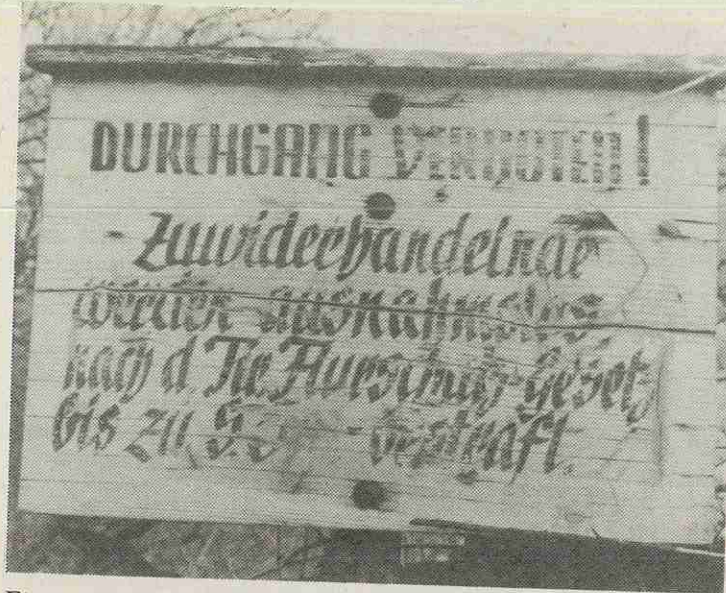 DURCHGANG VERBOTEN!
Zuwiderhandelnde
werden ausnahmslos
nach d. Flurschutz-Gesetz
bis zu bestraft.